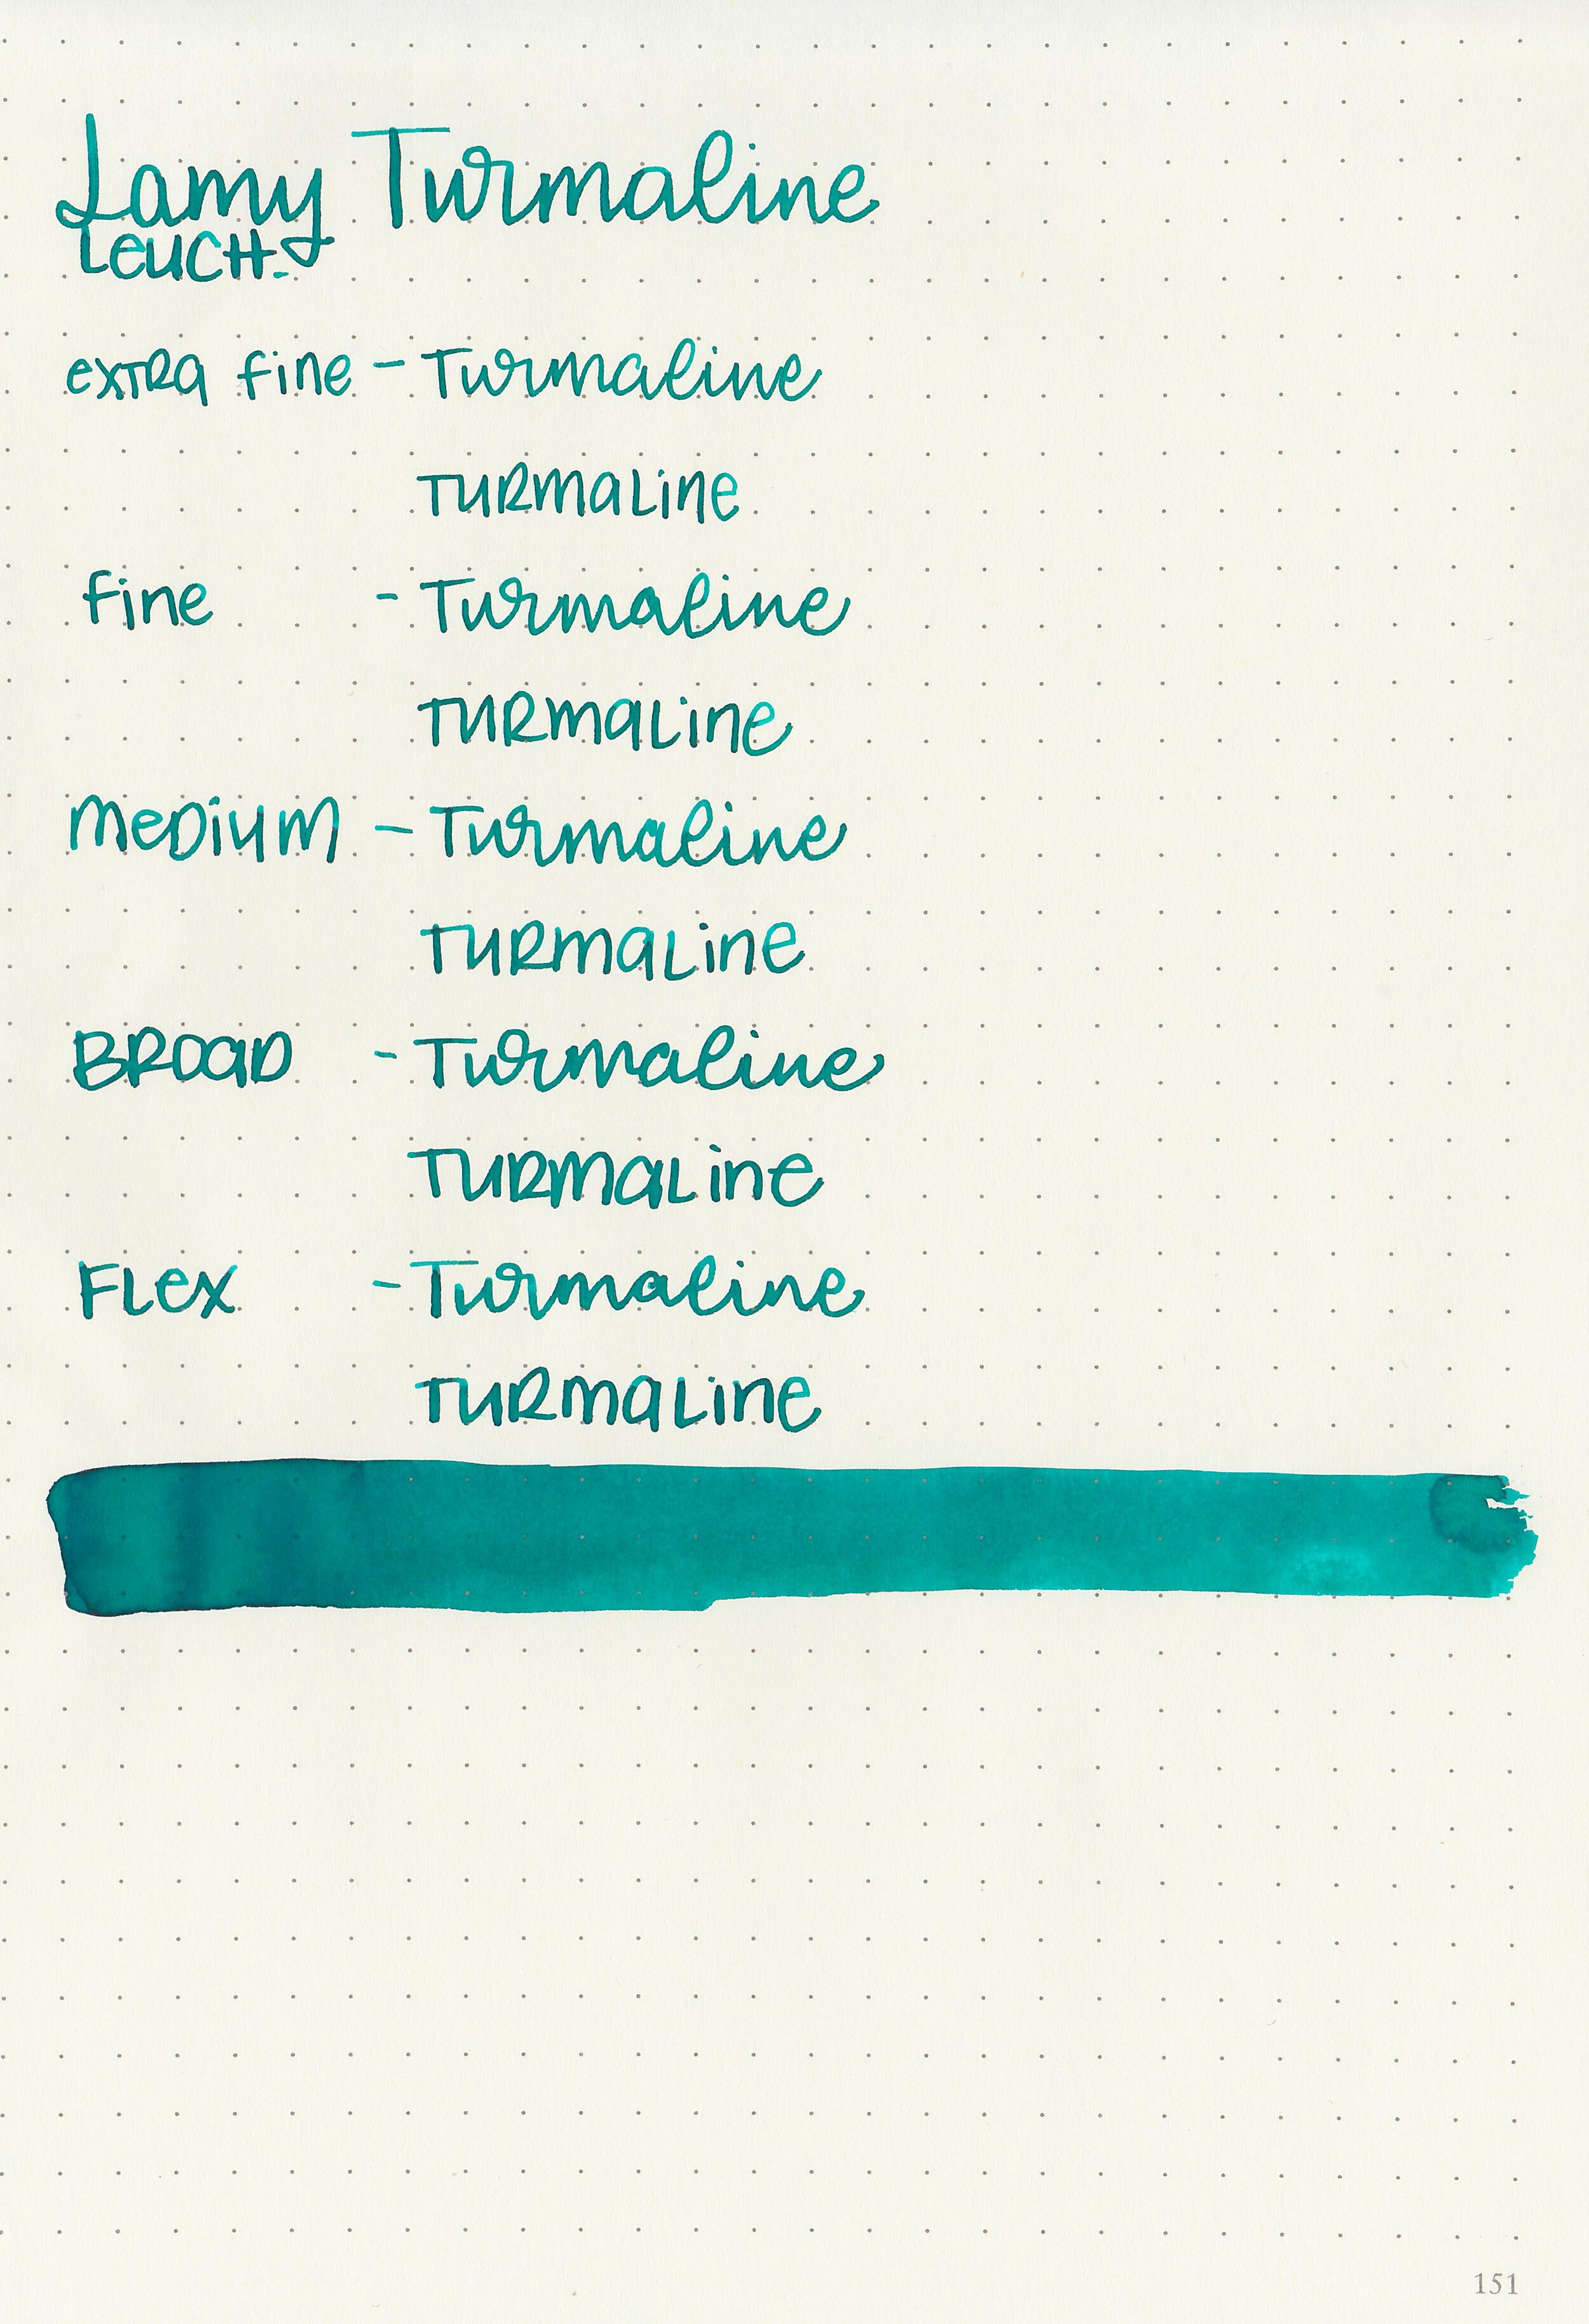 Lamy Turmaline
Leuch.
extra fine - Turmaline
Turmaline
fine - Turmaline
Turmaline
medium - Turmaline
Turmaline
Broad - Turmaline
Turmaline
Flex - Turmaline
Turmaline
151